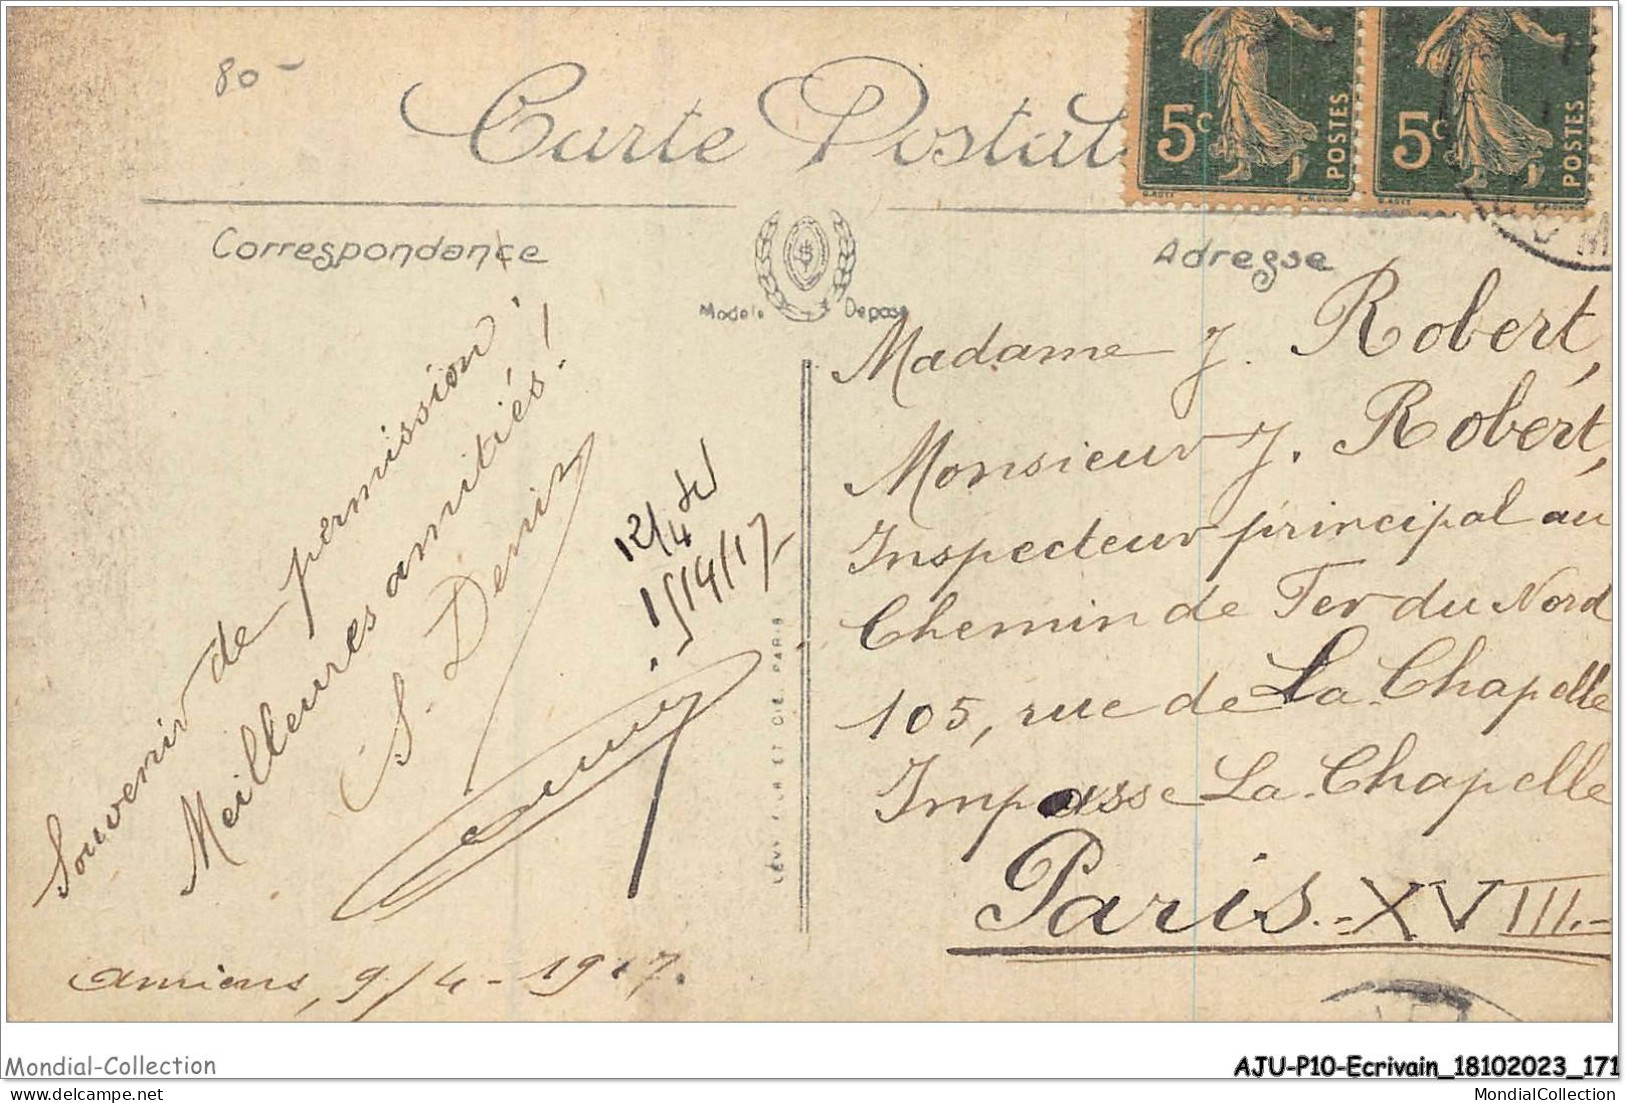 80-
Carte Postal
5c
POSTES
5c
POSTES
Correspondance
Adresse
Modele Depose
Souvenir de permission
Meilleures amitiés!
S. Denis
12/4
15/4/17
Amiens, 9/4-1917.
LEVY FILS ET CIE. PARIS
Madame J. Robert,
Monsieur J. Robert,
Inspecteur principal au
Chemin de Fer du Nord
105, rue de La Chapelle
Impasse La Chapelle
Paris.-XVIII.-
Mondial-Collection
AJU-P10-Ecrivain_18102023_171
Mondial-Collection sur Delcampe.net
MondialCollection